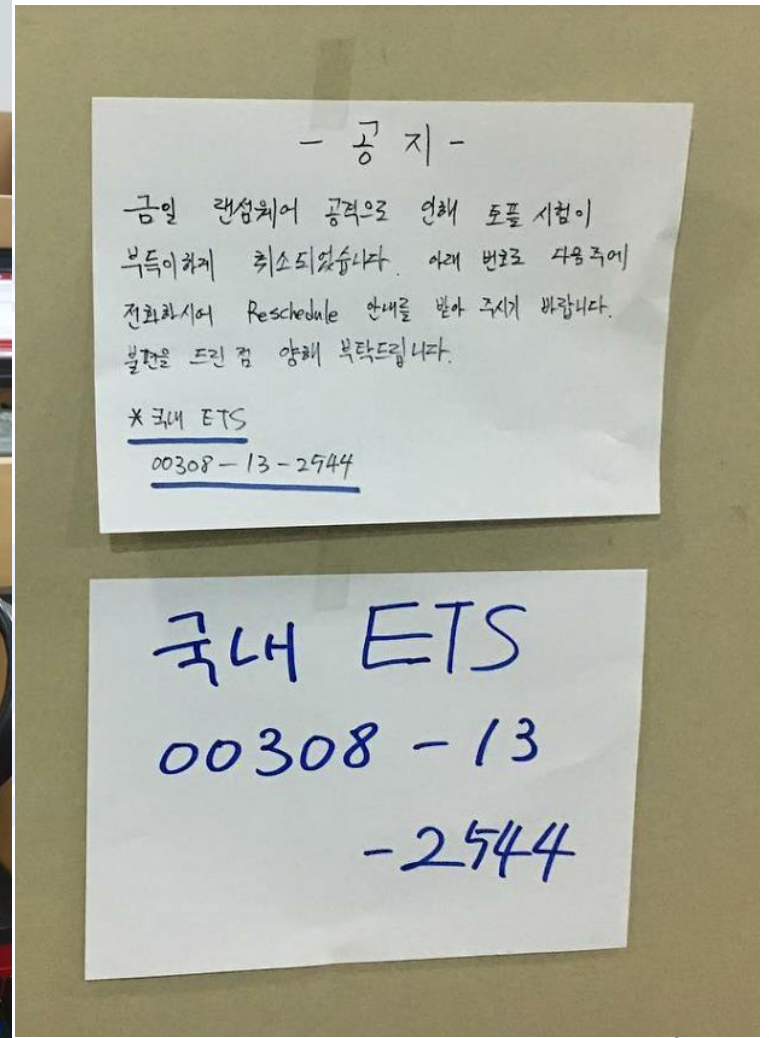 - 공 지 -
금일 랜섬웨어 공격으로 인해 토플 시험이
부득이하게 취소되었습니다. 아래 번호로 다음주에
전화하시어 Reschedule 안내를 받아 주시기 바랍니다.
불편을 드린 점 양해 부탁드립니다.
* 국내 ETS
00308-13-2544
국내 ETS
00308-13
-2544